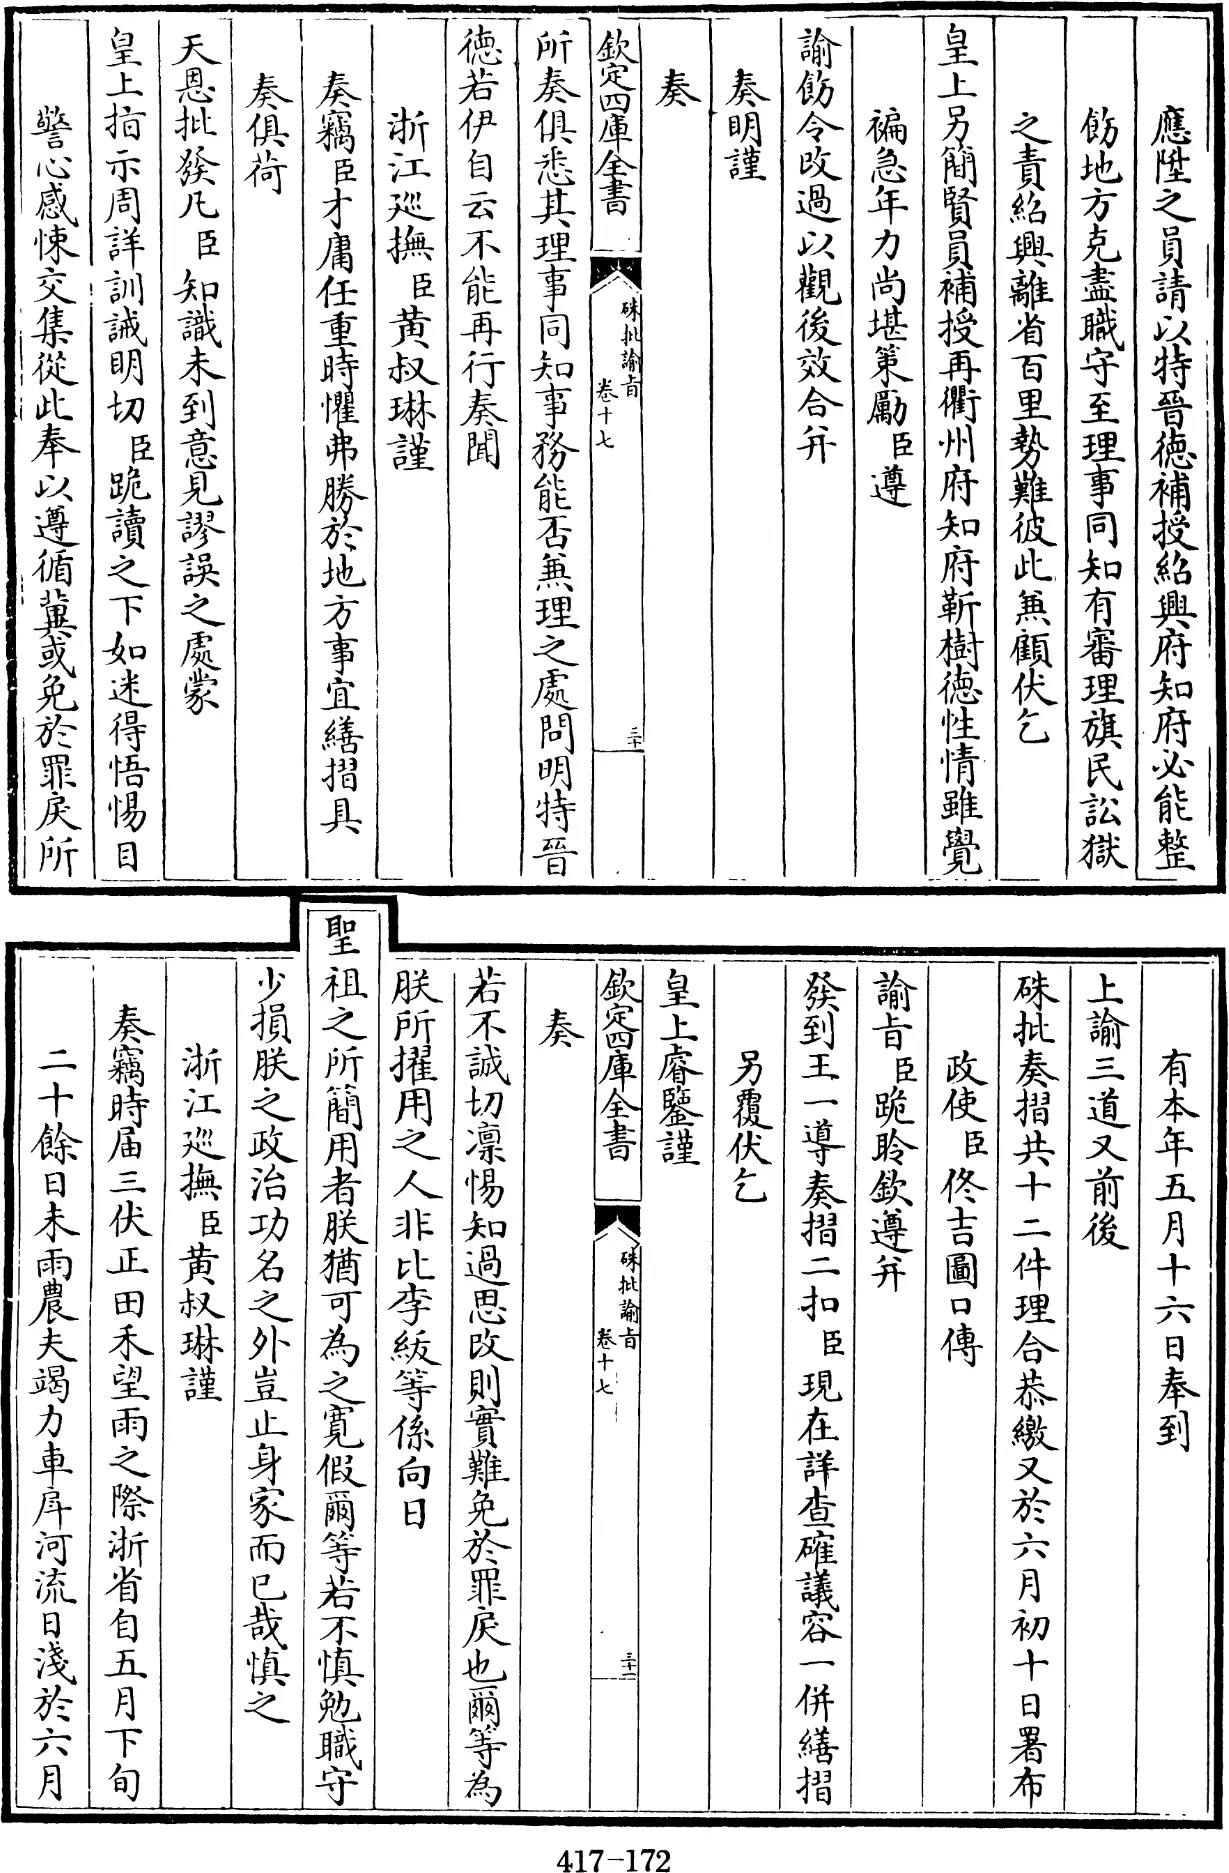 應陞之員請以特晉德補授紹興府知府必能整
飭地方克盡職守至理事同知有審理旗民訟獄
之責紹興離省百里勢難彼此兼顧伏乞
皇上另簡賢員補授再衢州府知府靳樹德性情雖覺
褊急年力尚堪策勵臣遵
諭飭令改過以觀後效合并
奏明謹
奏
欽定四庫全書
硃批諭旨
卷十七
三十
所奏俱悉其理事同知事務能否兼理之處問明特晉
德若伊自云不能再行奏聞
浙江巡撫臣黃叔琳謹
奏竊臣才庸任重時懼弗勝於地方事宜繕摺具
奏俱荷
天恩批發凡臣知識未到意見謬誤之處蒙
皇上指示周詳訓誡明切臣跪讀之下如迷得悟惕目
警心感悚交集從此奉以遵循冀或免於罪戾所
有本年五月十六日奉到
上諭三道又前後
硃批奏摺共十二件理合恭繳又於六月初十日署布
政使臣佟吉圖口傳
諭旨臣跪聆欽遵并
發到王一導奏摺二扣臣現在詳查確議容一併繕摺
另覆伏乞
皇上睿鑒謹
欽定四庫全書
硃批諭旨
卷十七
三十一
奏
若不誠切凛惕知過思改則實難免於罪戾也爾等為
朕所擢用之人非比李紱等係向日
聖祖之所簡用者朕猶可為之寬假爾等若不慎勉職守
少損朕之政治功名之外豈止身家而已哉慎之
浙江巡撫臣黃叔琳謹
奏竊時届三伏正田禾望雨之際浙省自五月下旬
二十餘日未雨農夫竭力車戽河流日淺於六月
417-172